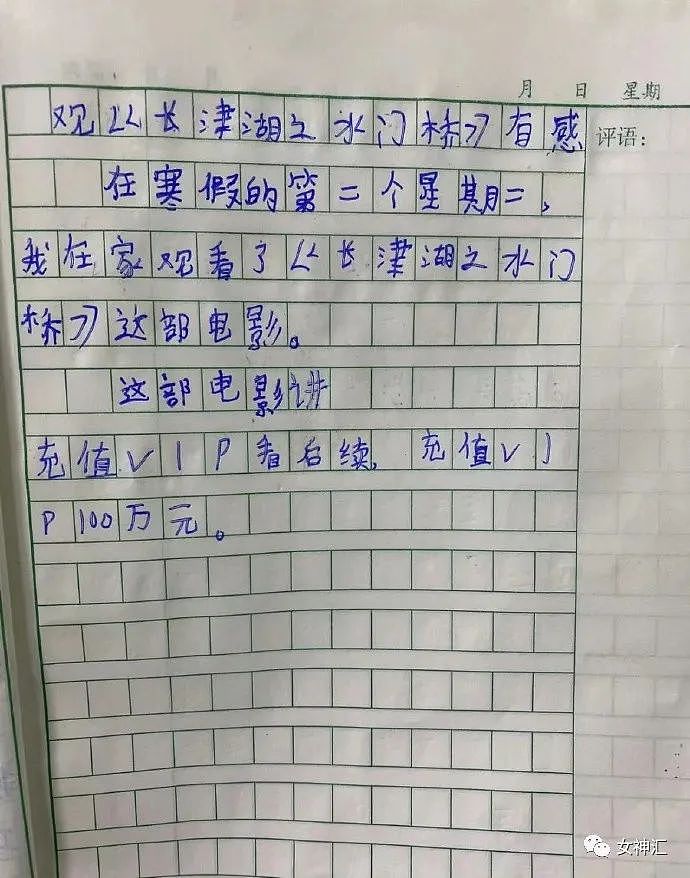 月 日 星期
观《长津湖之水门桥》有感
评语：
在寒假的第二个星期二，
我在家观看了《长津湖之水门
桥》这部电影。
这部电影讲
充值VIP看后续，充值VI
P100万元。
女神汇